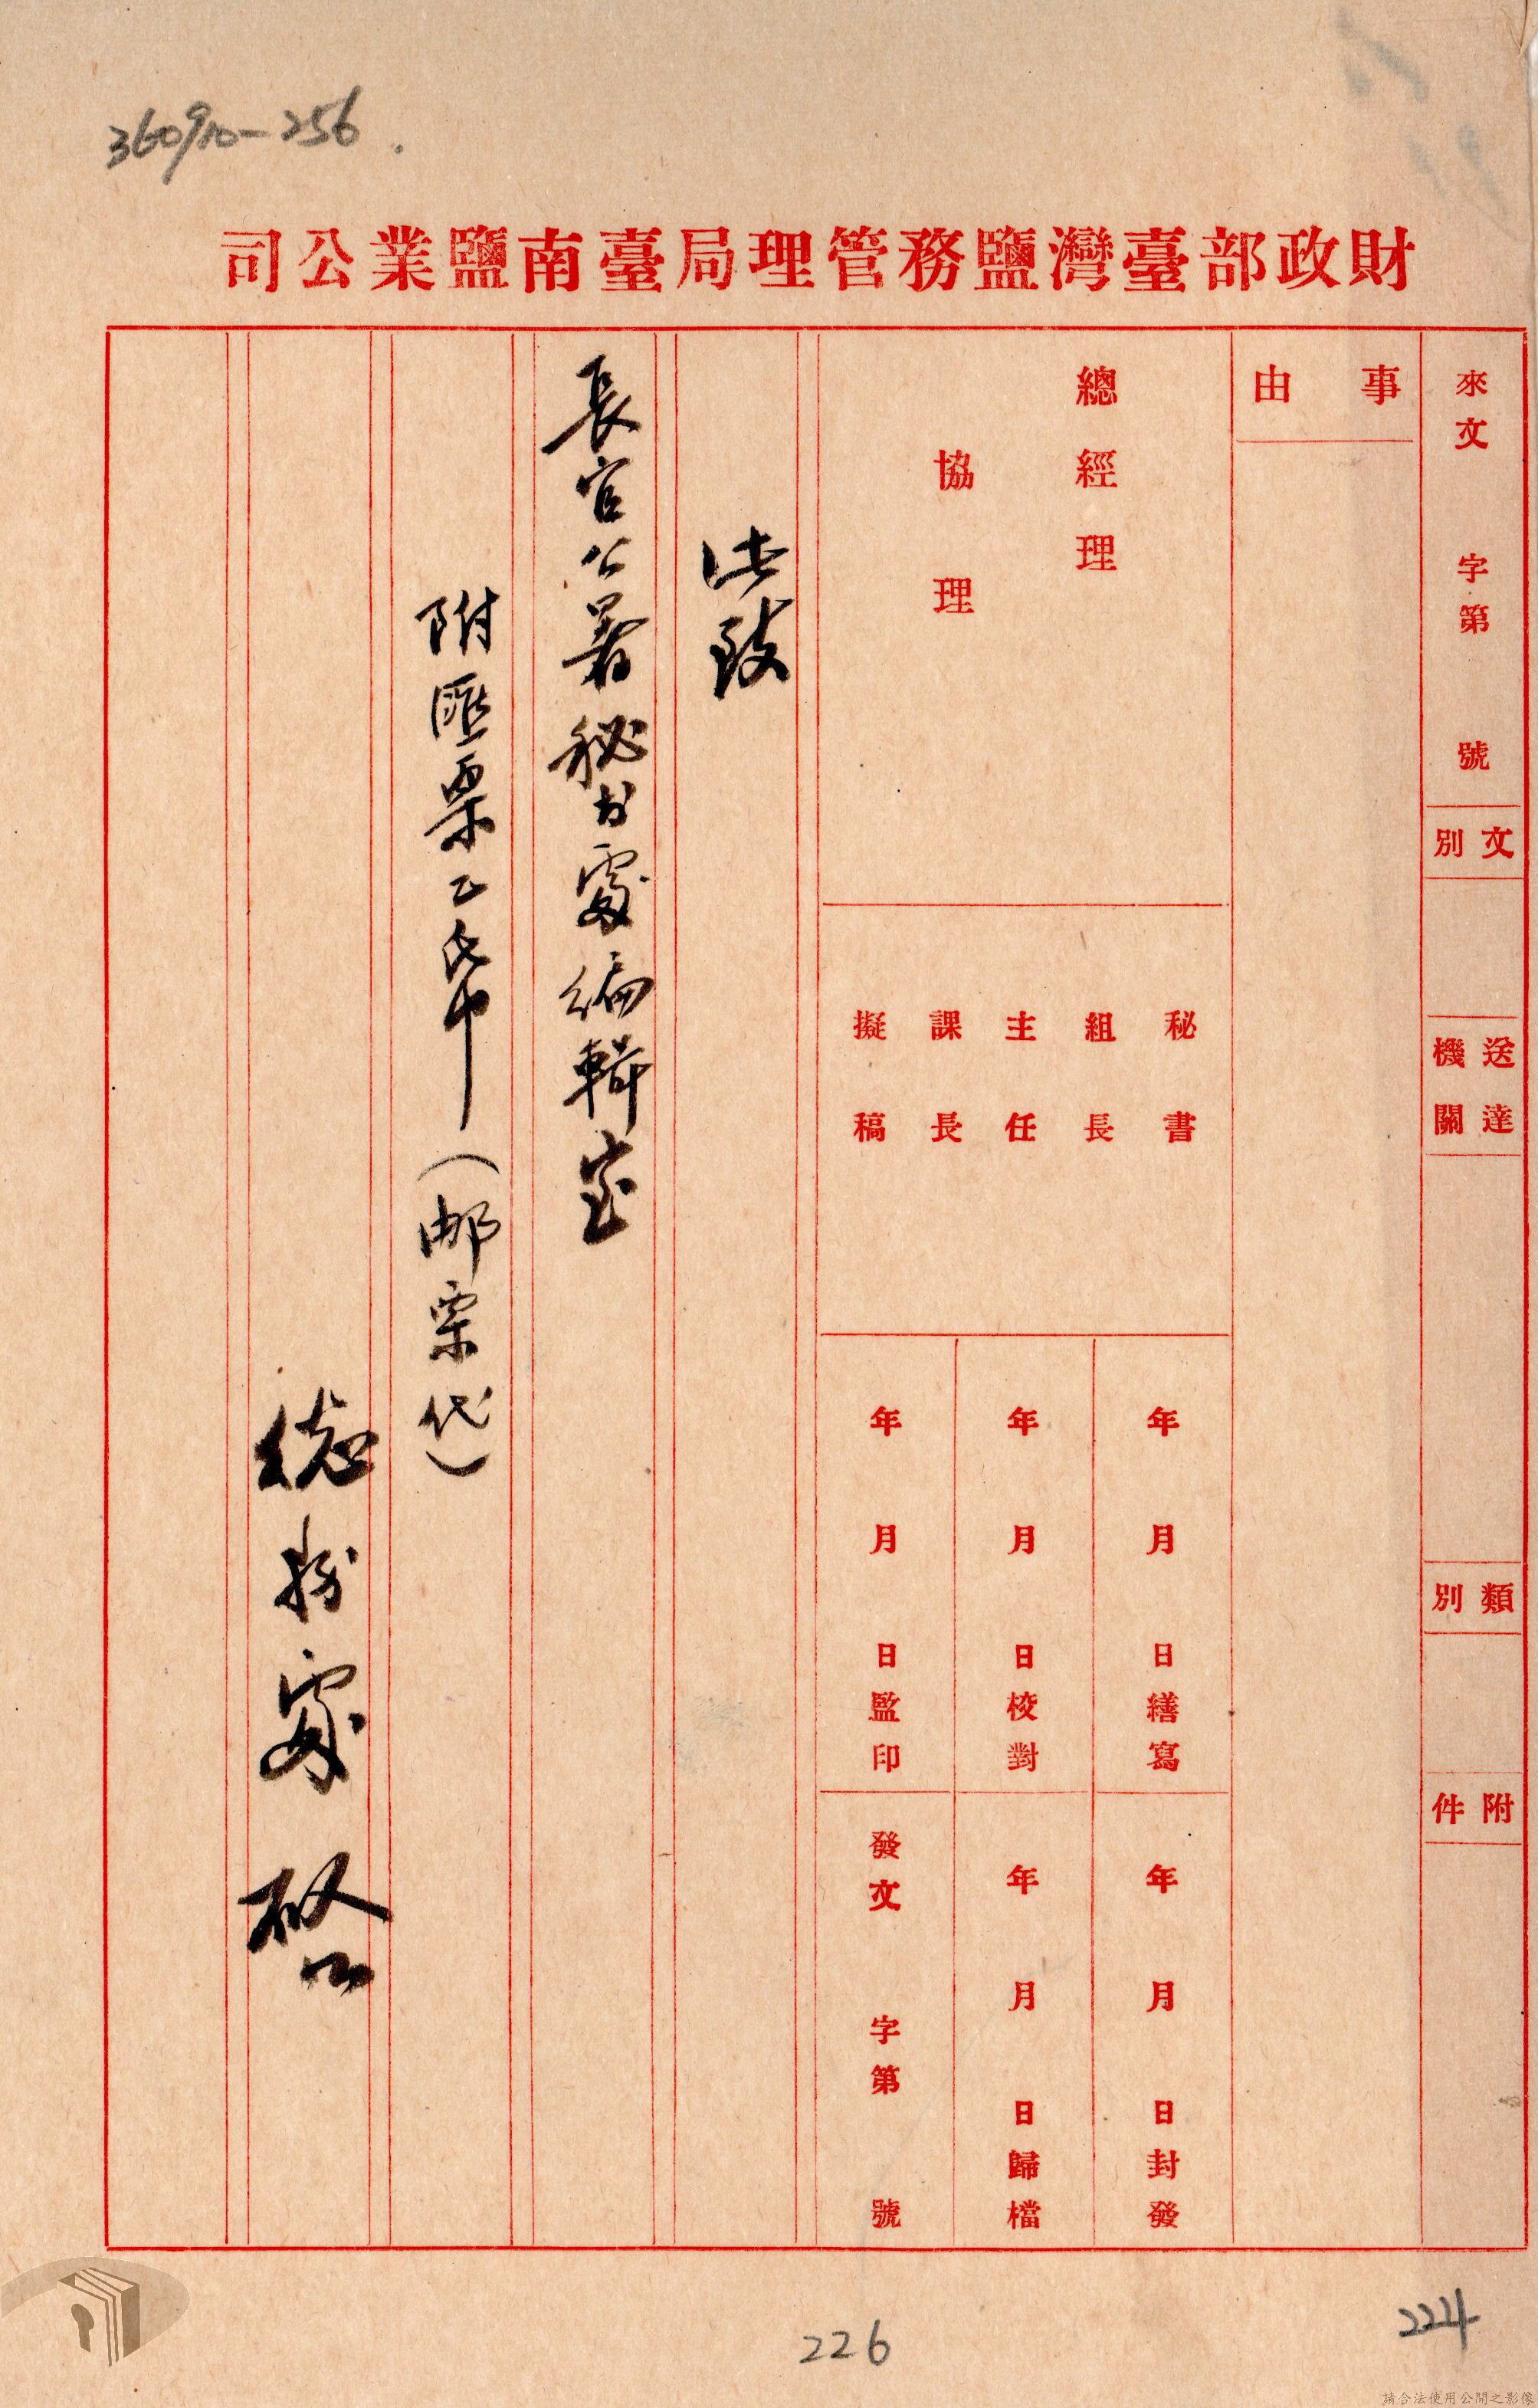 360910-256.
財政部臺灣鹽務管理局臺南鹽業公司
來文 字第 號
文別
送達機關
類別
附件
事由
總經理
協理
秘書
組長
主任
課長
擬稿
年 月 日繕寫
年 月 日校對
年 月 日監印
年 月 日封發
年 月 日歸檔
發文 字第 號
此致
長官公署秘书處編輯室
附匯票乙帋(邮票代)
總務處 啓
226
224
請合法使用公開之影像